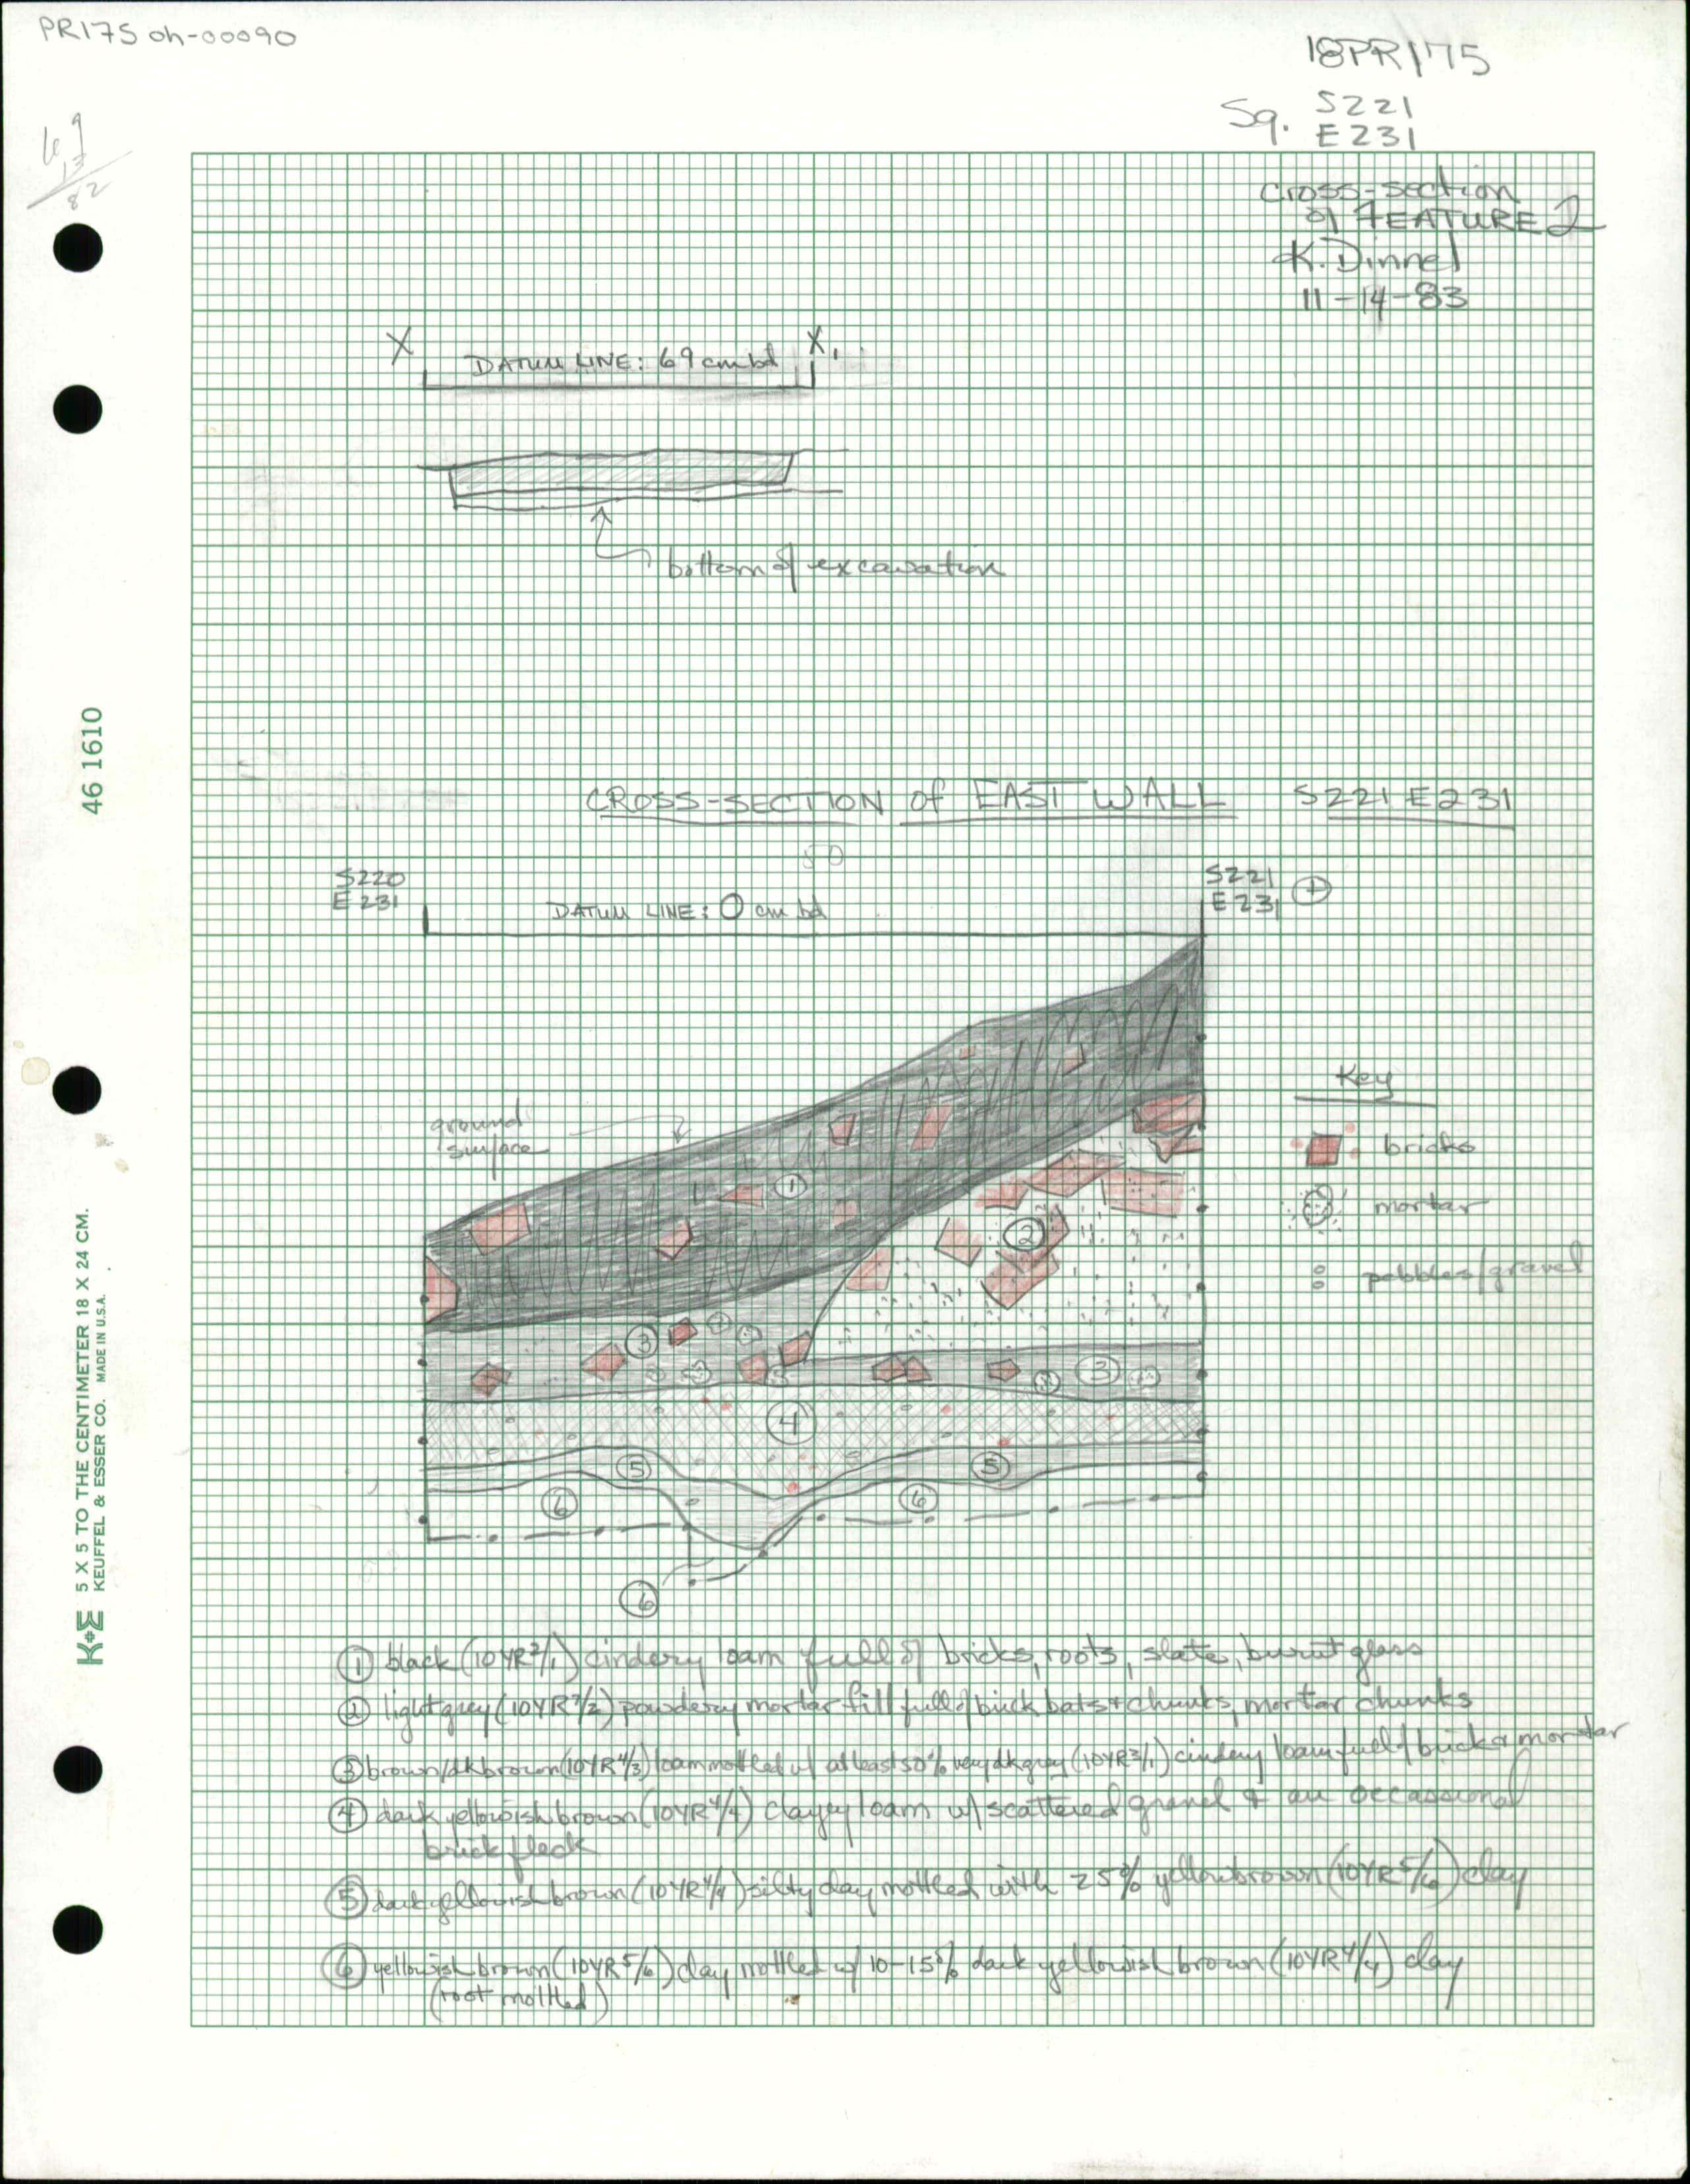 PR175 oh-00090
18PR175
Sq. S221
E231
69
13
82
cross-section
of FEATURE 2
K. Dinnel
11-14-83
X
X,
DATUM LINE: 69 cm bd
bottom of excavation
46 1610
CROSS-SECTION of EAST WALL S221 E231
50
S220
E231
S221
E231
DATUM LINE: 0 cm bd
Key
bricks
mortar
pebbles/gravel
ground
surface
1
2
3
3
4
5
5
6
6
6
K+E 5 X 5 TO THE CENTIMETER 18 X 24 CM.
KEUFFEL & ESSER CO. MADE IN U.S.A.
① black (10YR2/1) cindery loam full of bricks, roots, slate, burnt glass
② light grey (10YR7/2) powdery mortar fill full of brick bats + chunks, mortar chunks
③ brown/dk brown (10YR4/3) loam mottled w/ at least 50% very dk gray (10YR3/1) cindery loam full of brick & mortar
④ dark yellowish brown (10YR4/4) clayey loam w/ scattered gravel & an occassional
brick fleck
⑤ dark yellowish brown (10YR4/4) silty clay mottled with 25% yellow brown (10YR5/6) clay
⑥ yellowish brown (10YR5/6) clay mottled w/ 10-15% dark yellowish brown (10YR4/4) clay
(root mottled)